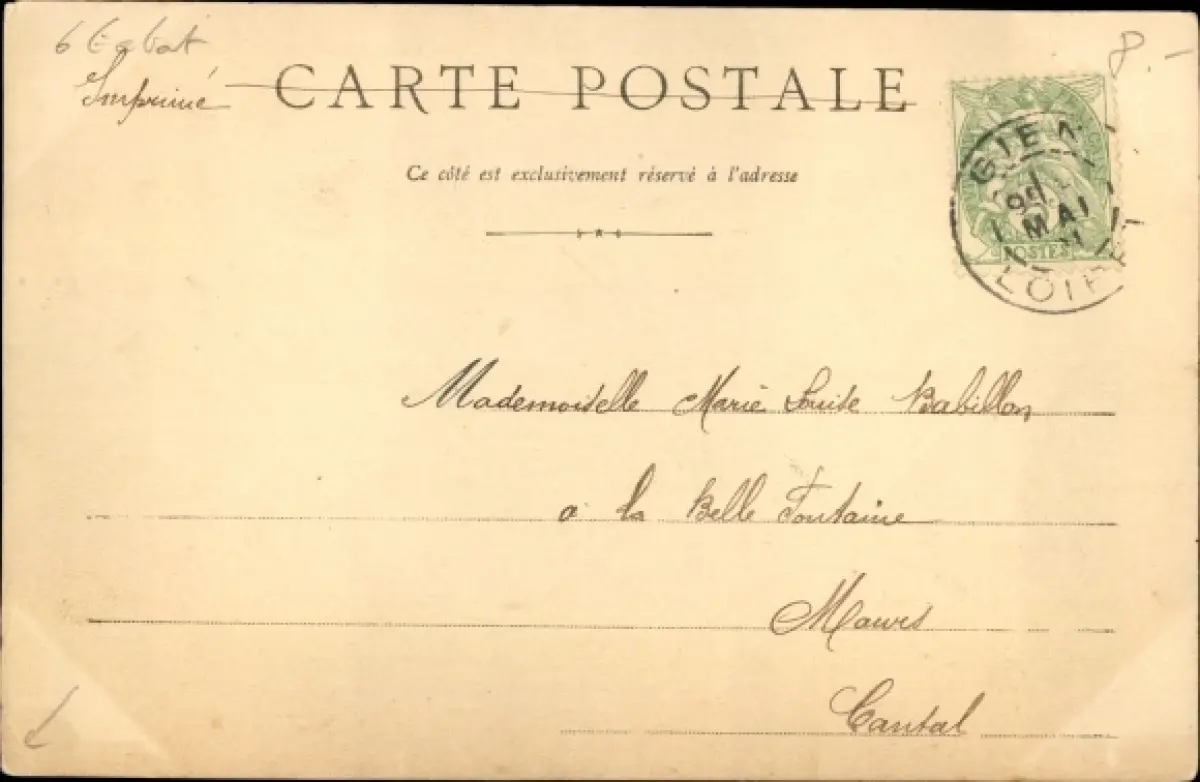 8.-
Imprimé
CARTE POSTALE
Ce côté est exclusivement réservé à l'adresse
GIEN
MAI
LOIRET
POSTES
Mademoiselle Marie Louise Babillon
a la Belle Fontaine
Maurs
Cantal